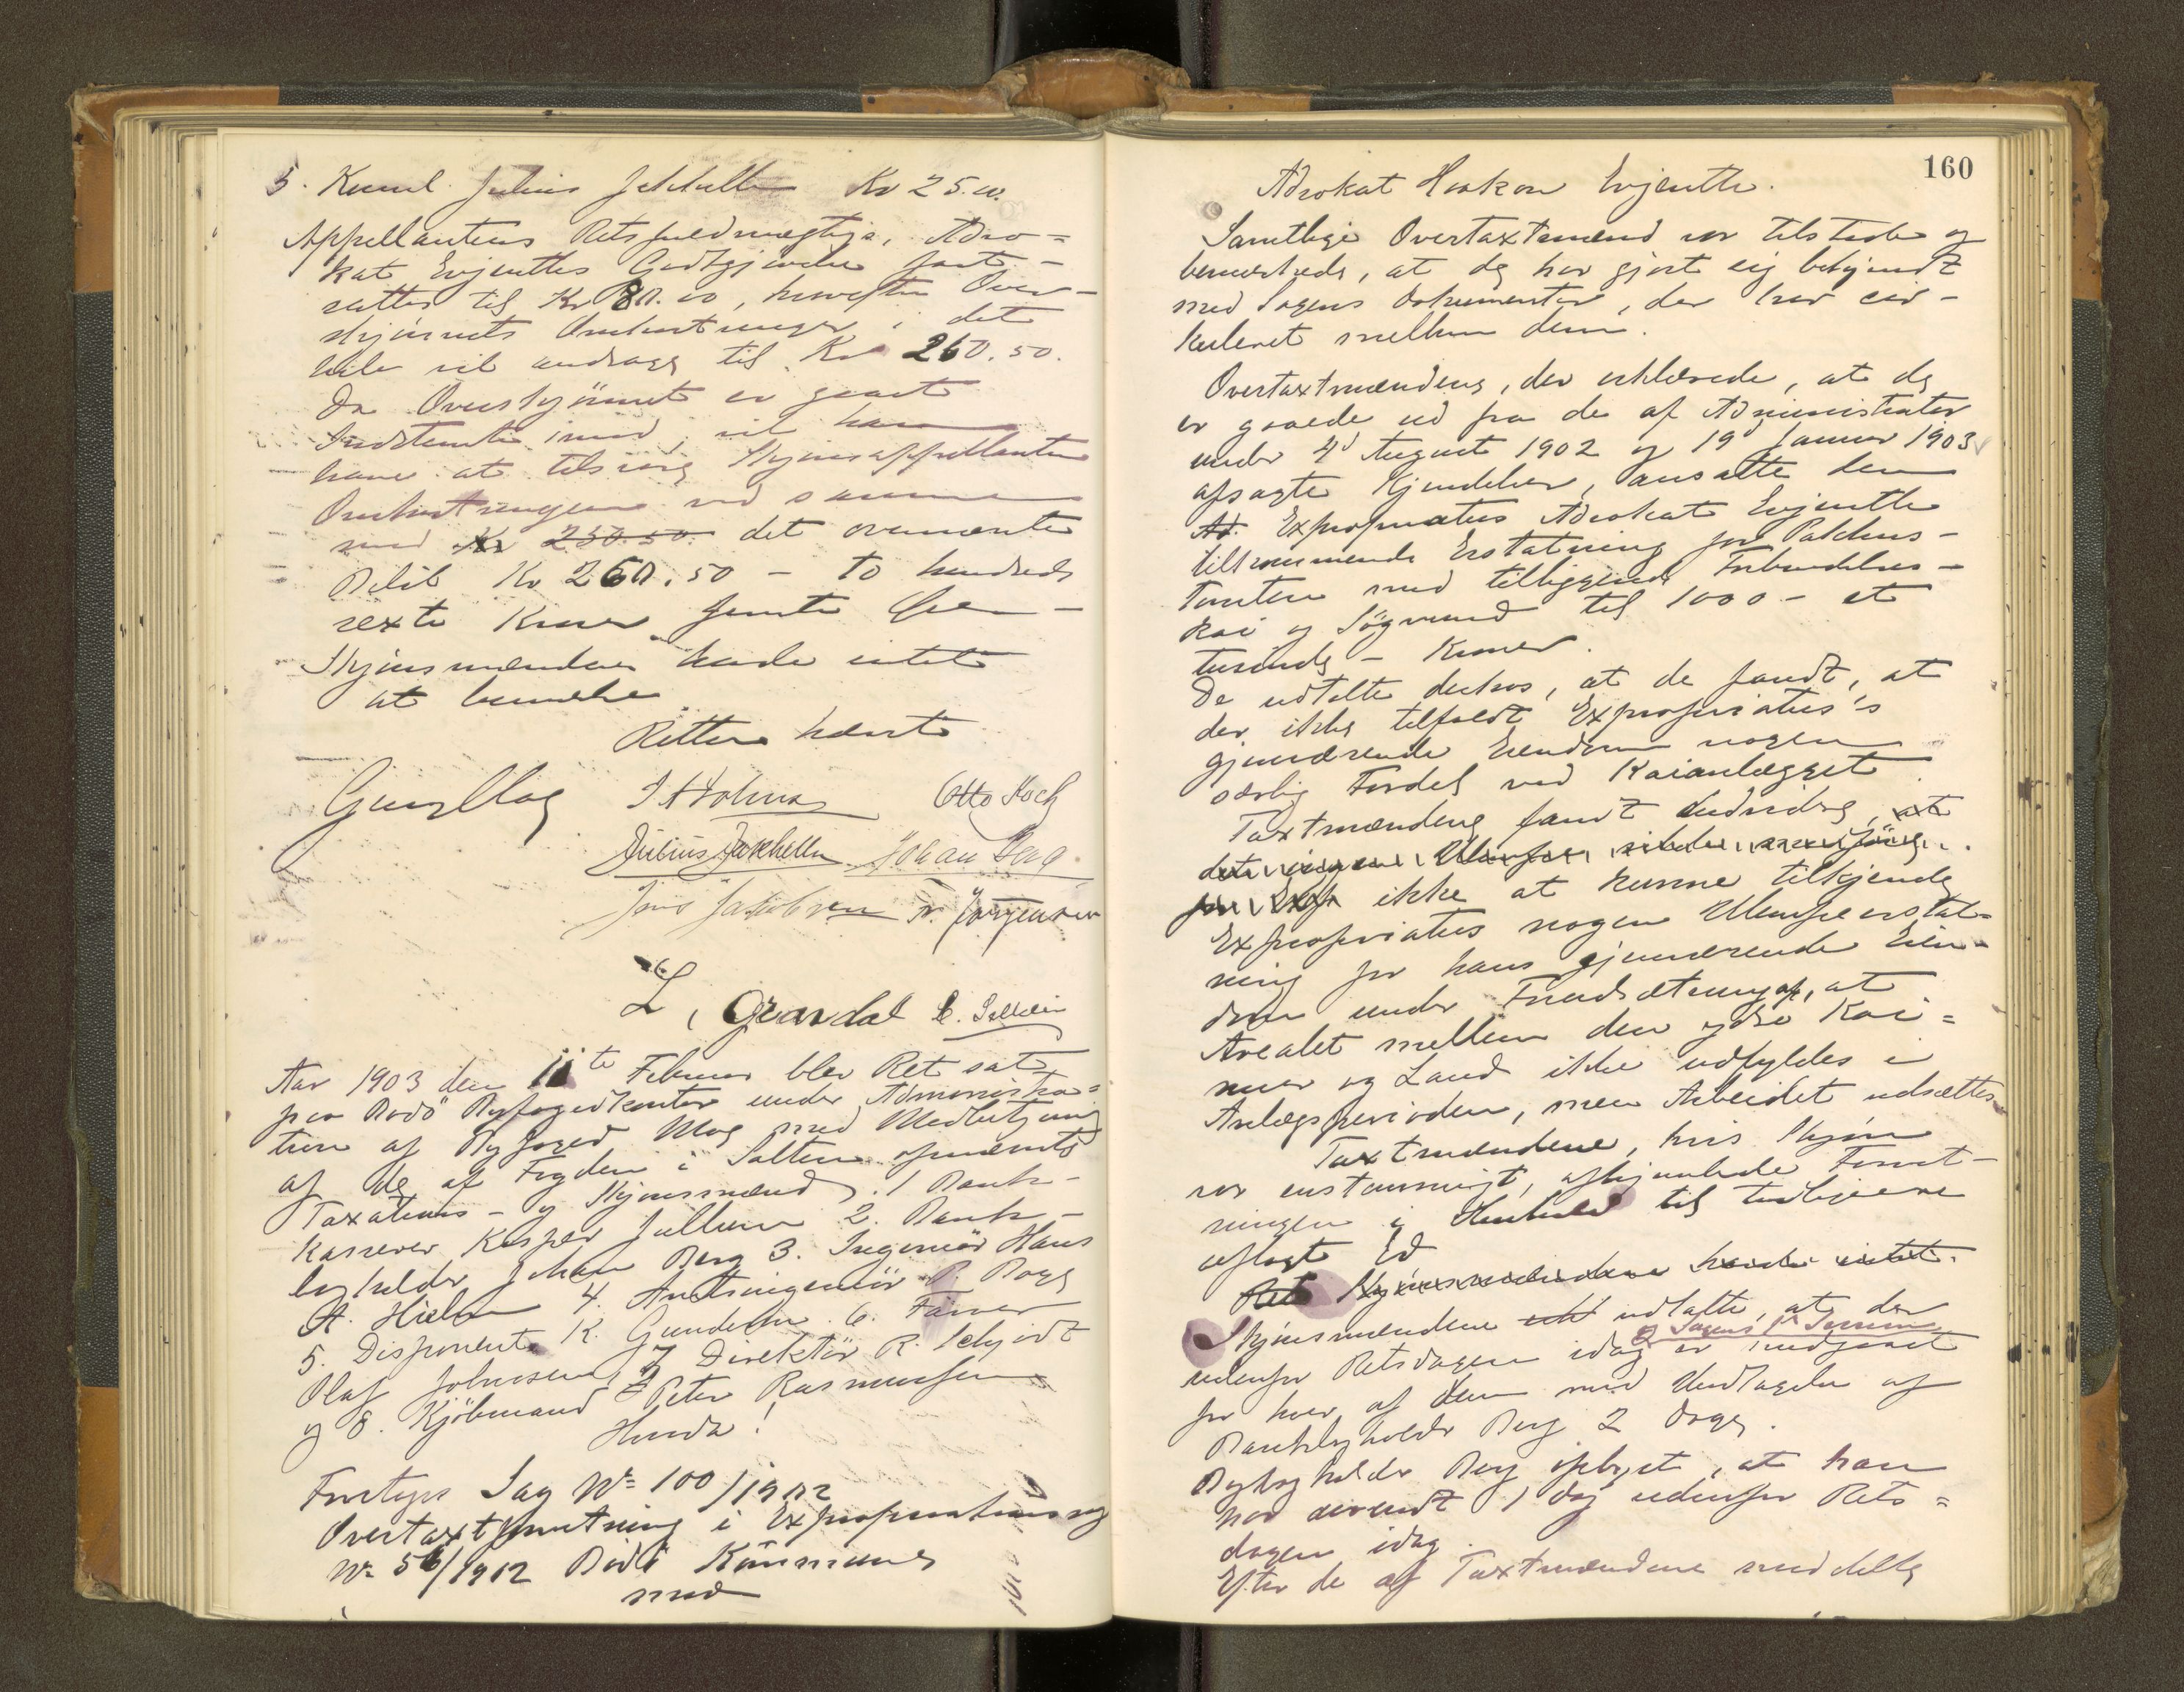 5. Kuml. Julius Jakhelln Kr 25.00.
Appellantens Retsfuldmægtige, Advo-
kat Evjenths Godtgjørelse fast-
sættes til Kr 80.00, hvorefter Over-
skjønnets Omkostninger i det
hele vil andrage til Kr 260.50.
Da Overskjønnet er gaaet
Indstevnte imod, vil han
have at tilsvare Skjønsappellanten
Omkostningerne ved samme
med Kr 250.50. det ovennævnte
Beløb Kr 260.50 - to hundrede
sexti Kroner femti Øre -
Skjønsmændene havde intet
at bemærke
Retten hævet
Otto Koch
Julius Jakhelln Johan Berg
Jens Jakobsen N. Jørgensen
L. Grøndal
Aar 1903 den 11te Februar blev Ret sat
paa Bodø Byfogedkontor under Administra=
tion af Byfoged Moe med Medbetjening
af de af Fogden i Salten opnævnte
Taxations- og Skjønsmænd: 1 Bank-
kasserer Kasper Jullum 2. Bank-
bogholder Johan Berg 3. Ingeniør Hans
A. Hielm 4. Amtsingeniør B. Bage
5. Disponent K. Gundersen. 6. Farver
Olaf Johnsen, 7 Direktør R. Schjødt
og 8. Kjøbmand Peter Rasmussen
Hvorda!
Foretoges Sag No 100/1902
Overtaxtforretning i Expropriationssag
No 56/1902 Bodø Kommune
mod
160
Advokat Haakon Evjenth.
Samtlige Overtaxtmænd var tilstede og
bemærkede, at de har gjort sig bekjendt
med Sagens Dokumenter, der har cir-
kuleret mellem dem.
Overtaxtmændene, der erklærede, at de
er gaaede ud fra de af Administrator
under 4d August 1902 og 19d Januar 1903
afsagte Kjendelser, ansatte den
Ad. Expropriatus Advokat Evjenth
tilkommende Erstatning for Pakhus-
tomten med tilliggende Forbindelses-
kai og Søgrund til 1000 - et
tusinde - Kroner.
De udtalte derhos, at de fandt, at
der ikke tilfaldt Expropriatus's
gjenværende Eiendom nogen
særlig Fordel ved Kaianlægget.
Taxtmændene fandt endvidere, at
det ingen Ulempe vilde medføre
for Exp ikke at kunne tilkjende
Expropriatus nogen Ulempeerstat=
ning for hans gjenværende Eien-
dom under Forudsætning af, at
Arealet mellem den ydre Kai=
mur og Land ikke udfyldes i
Anlægsperioden, men Arbeidet udsættes.
Taxtmændene, hvis Skjøn
var enstemmigt, afhjemlede Forret-
ningen i Henhold til tidligere
aflagt Ed
Ret Skjønsmændene havde intet.
Skjønsmændene udtalte, at der
og Sagens
udenfor Retsdagen idag er medgaaet
for hver af dem med Undtagelse af
Bankbogholder Berg 2 Dage.
Bogholder Berg oplyste, at han
har anvendt 1 Dag udenfor Rets=
dagen idag.
Efter de af Taxtmændene meddelte